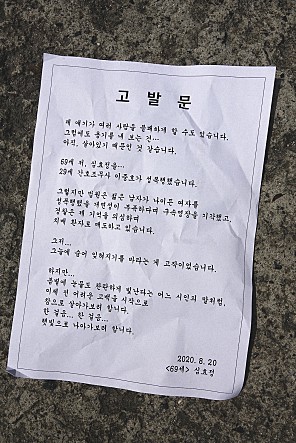 고 발 문
제 얘기가 여러 사람을 불쾌하게 할 수도 있습니다.
그럼에도 용기를 내 보는 건...
아직, 살아있기 때문인 것 같습니다.
69세 저, 심효정을...
29세 간호조무사 이중호가 성폭행했습니다.
그렇지만 법원은 젊은 남자가 나이든 여자를
성폭행했을 개연성이 부족하다며 구속영장을 기각했고,
경찰은 제 기억을 의심하며
치매 환자로 매도하고 있습니다.
그저...
그늘에 숨어 잊혀지기를 바라는 게 고작이었습니다.
하지만...
봄볕에 눈물도 찬란하게 빛난다는 어느 시인의 말처럼,
이제 전 어려운 고백을 시작으로
참으로 살아가보려 합니다.
한 걸음... 한 걸음...
햇빛으로 나아가보려 합니다.
2020. 8. 20
<69세> 심효정